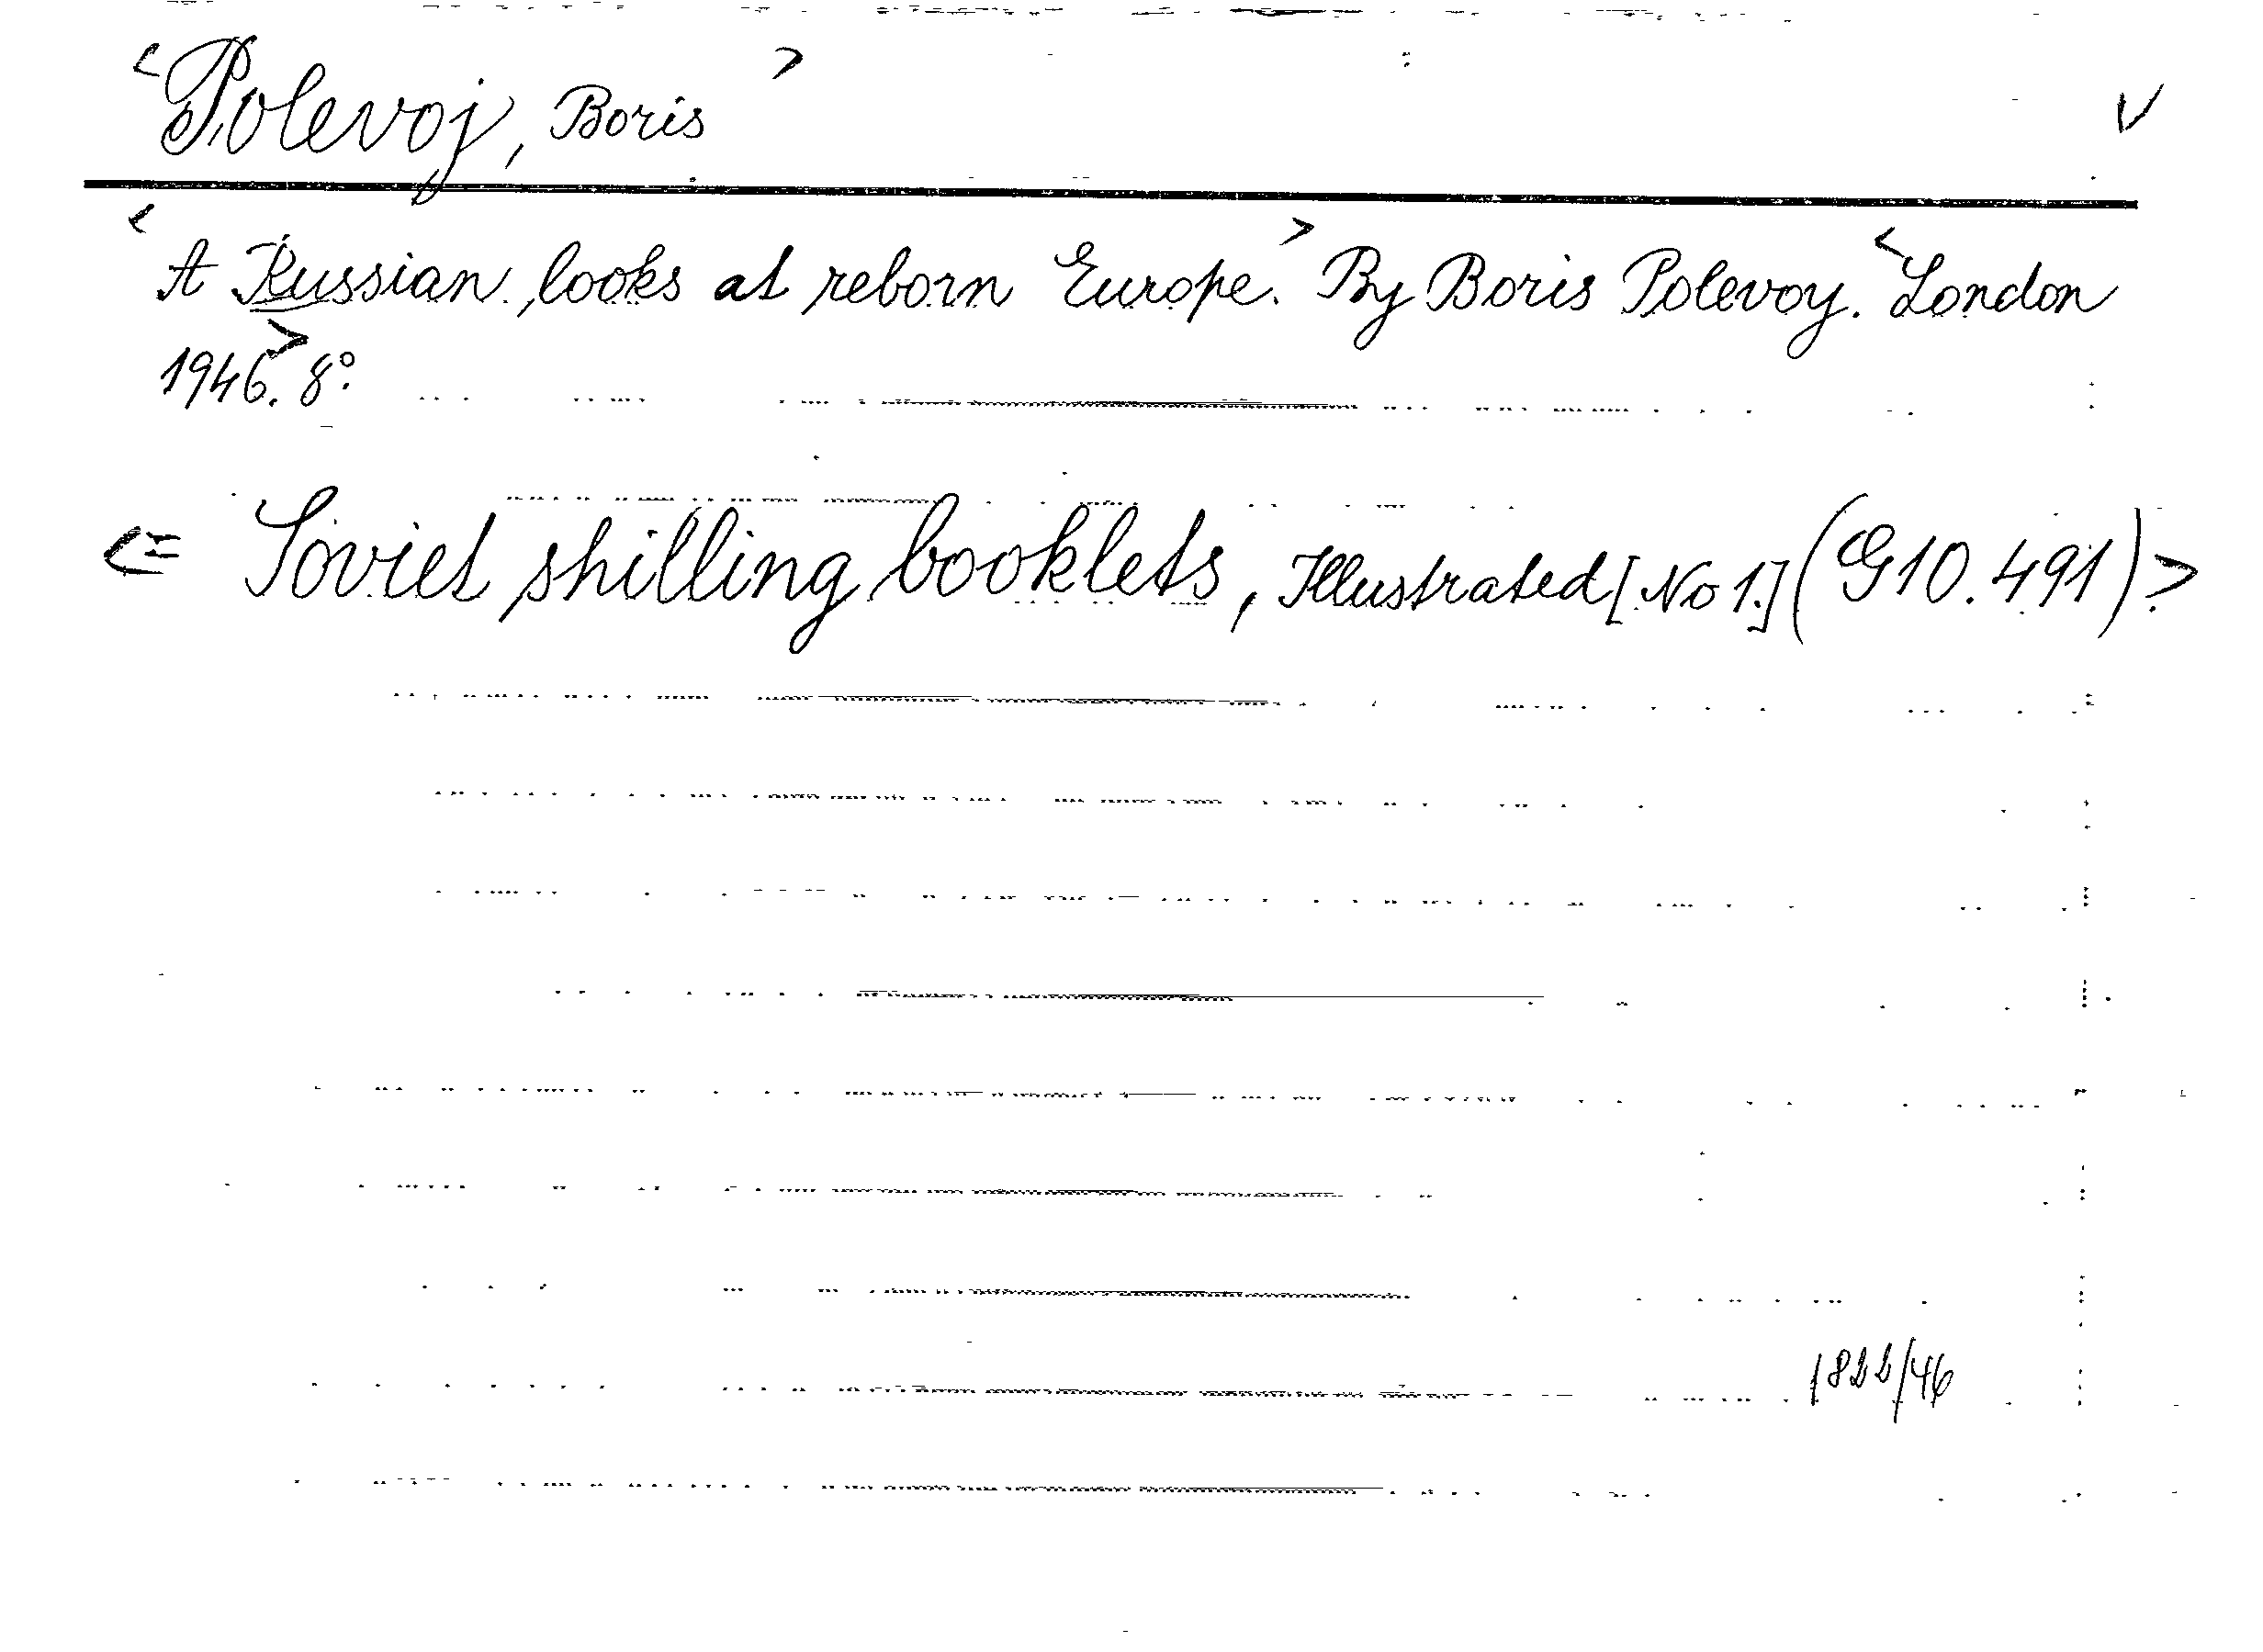 <Polevoj, Boris> V
<A Russian looks at reborn Europe.> By Boris Polevoy. <London
1946.> 8°.
<= Soviet shilling booklets, Illustrated [No 1.] (G10.491)>
1822/46